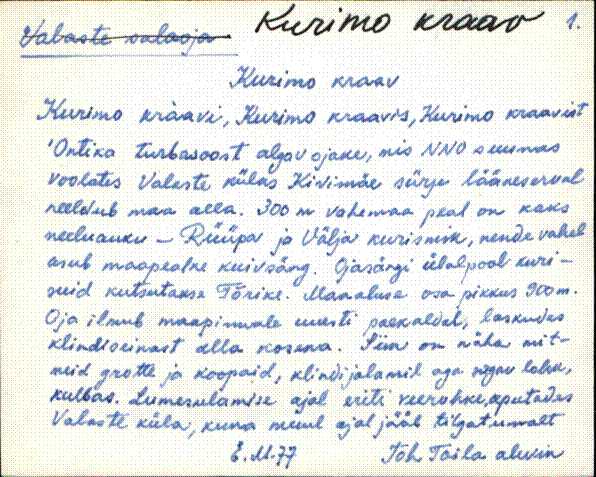 Valaste salaoja Kurimo kraav 1.
Kurimo kraav
Kurimo kràavi, Kurimo kraavis, Kurimo kraavist
'Ontika turbasoost algav ojake, mis NNO suunas
voolates Valaste külas Kivimäe särje lääneserval
neeldub maa alla. 300 m vahemaa peal on kaks
neeluauku – Rüüpa ja Välja kurismik, nende vahel
asub maapealne kuivsäng. Ojasängi ülalpool kuri-
suid kutsutakse Tõrike. Maaaluse osa pikkus 900 m.
Oja ilmub maapinnale uuesti paekaldal, laskudes
klindiseinast alla kosena. Siin on näha mit-
meid grotte ja koopaid, klindijalamil aga
kulbas. Lumesulamise ajal eriti veerohke,
Valaste küla, kuna muul ajal jääb tilgatumalt
E.M.77 Jõh Toila alevin